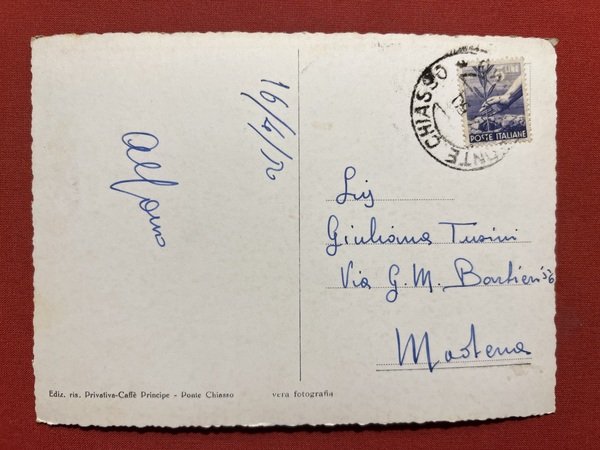 16/4/50
Alfonso
PONTE CHIASSO
LIRE
POSTE ITALIANE
Sig
Giuliana Tusini
Via G.M. Barbieri 36
Modena
Ediz. ris. Privativa-Caffè Principe - Ponte Chiasso
vera fotografia